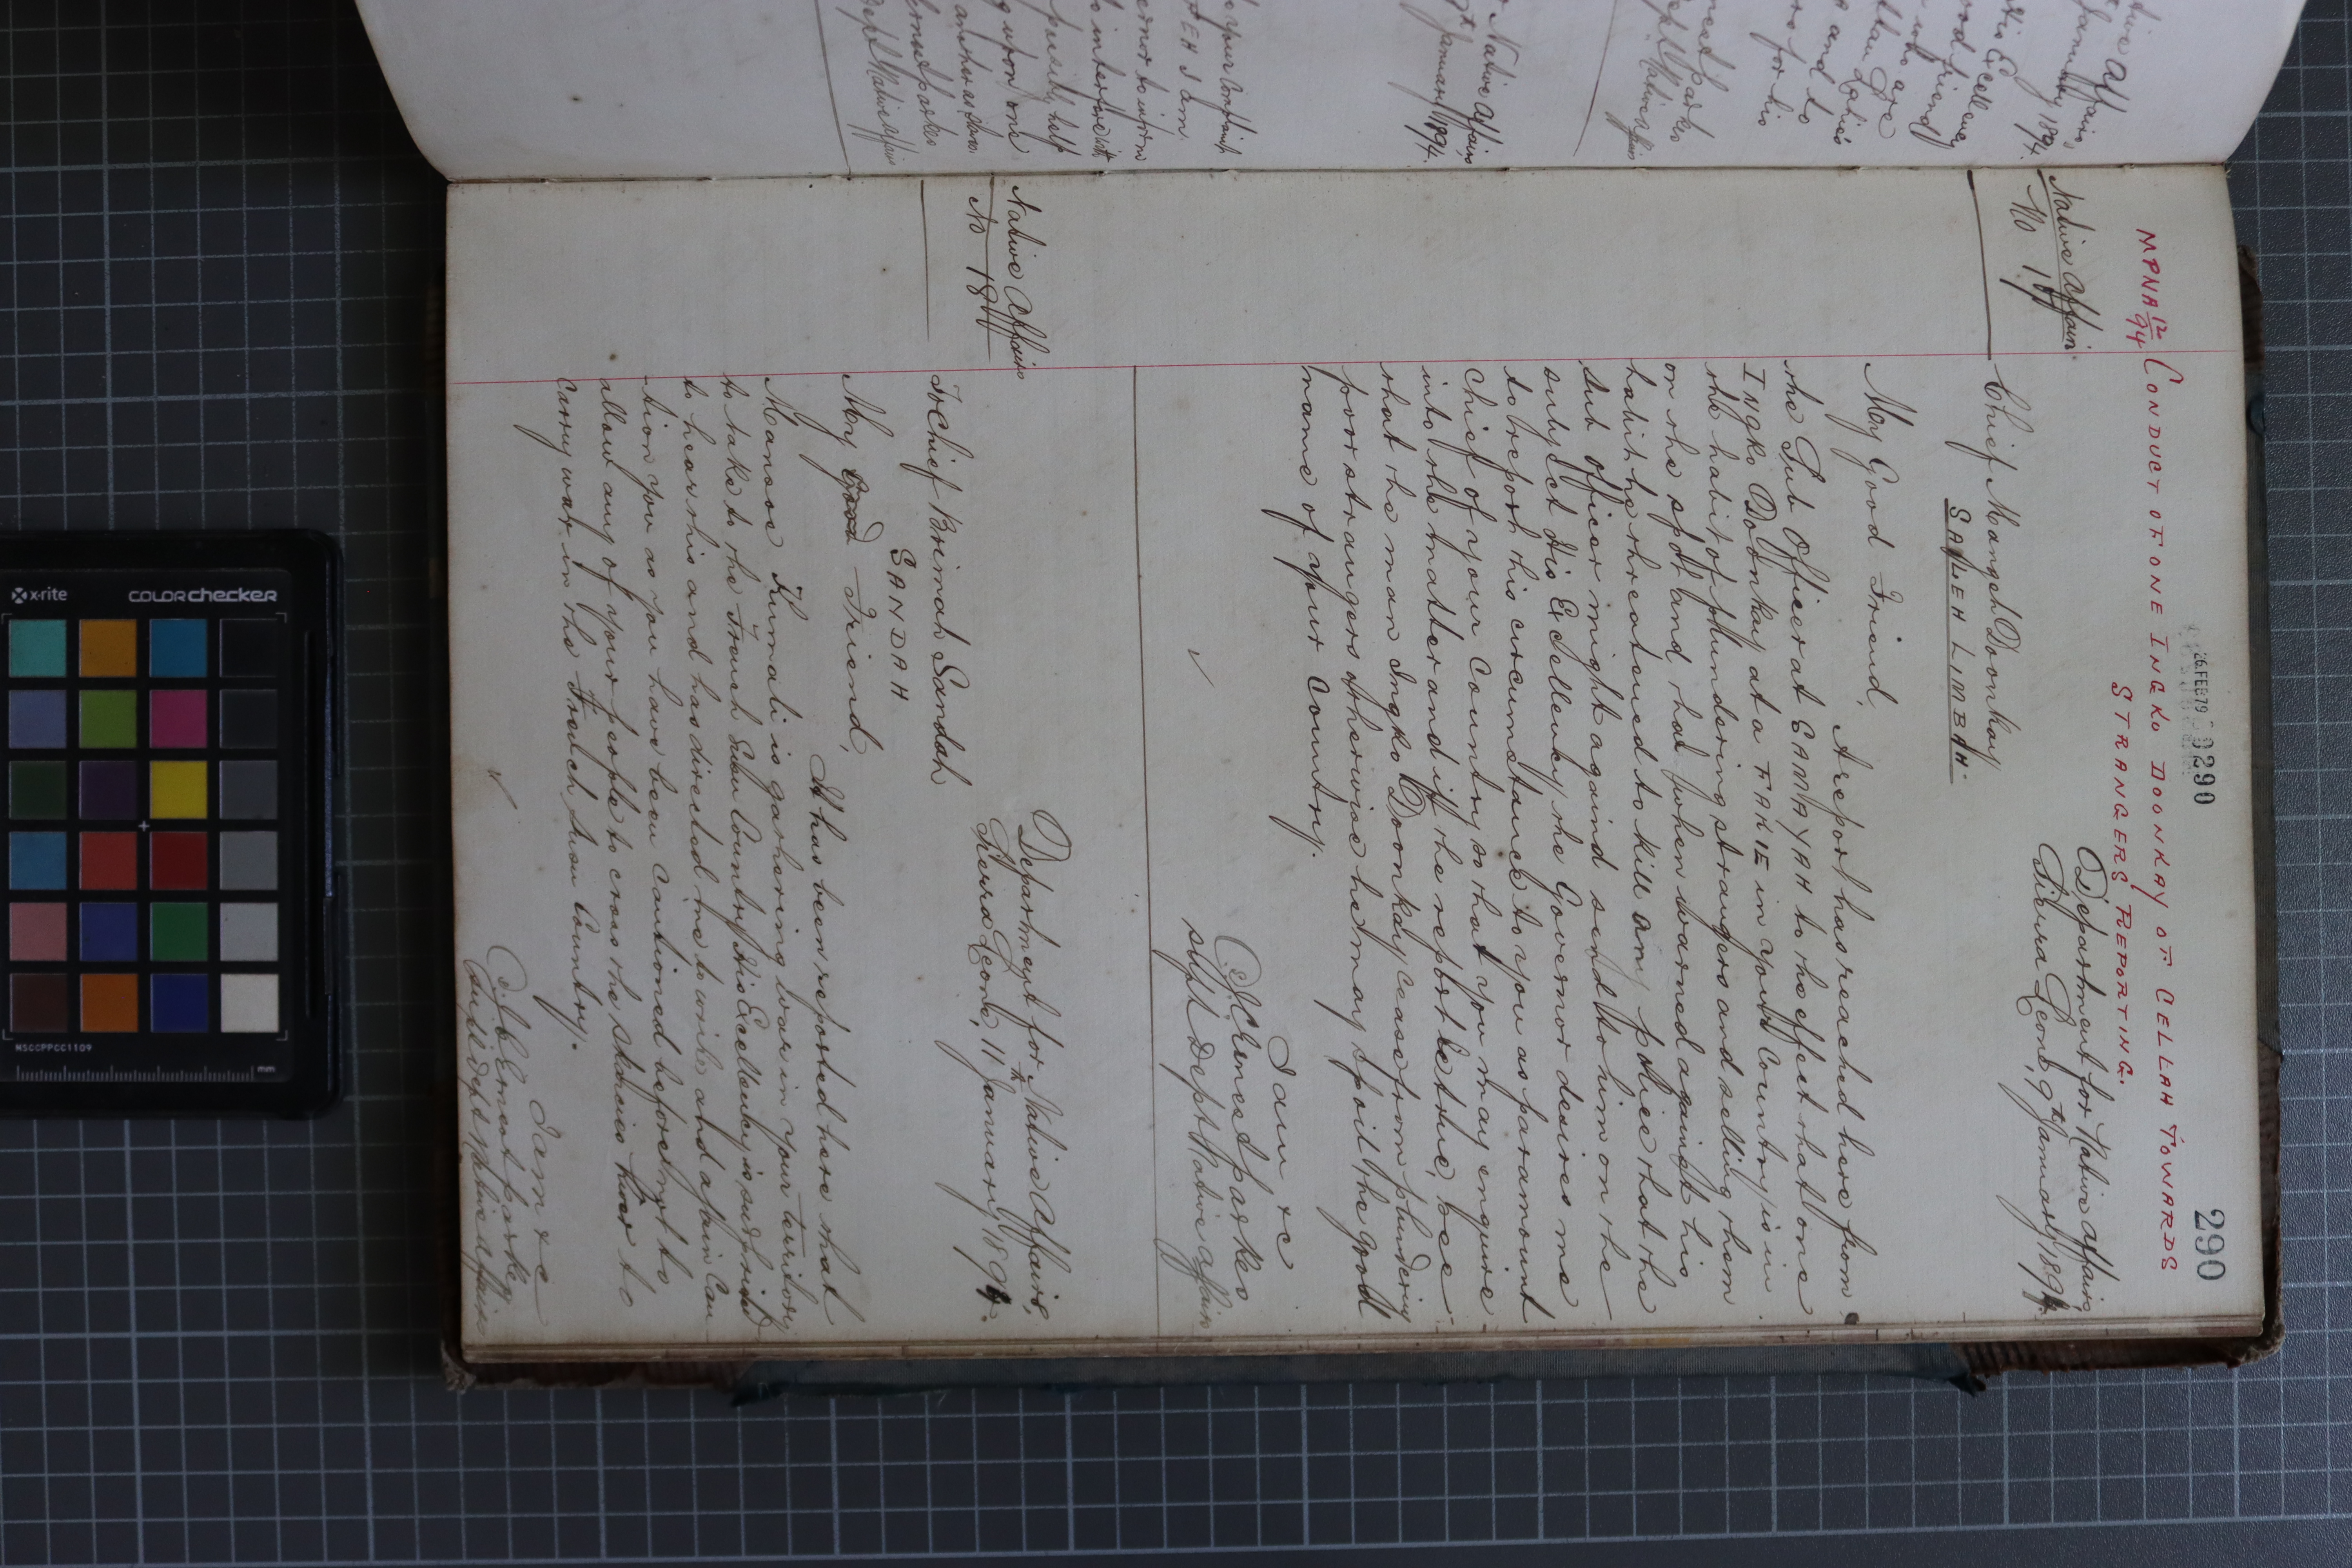 26 FEB 79 0290
290
MPNA 12/94 CONDUCT OF ONE INGKO DOONKAY OF CELLAH TOWARDS
STRANGERS REPORTING.
Native Affairs
No 17
Department for Native Affairs,
Sierra Leone, 9th January 1894.
Chief Mangah Doonkay
SAFLEH LIMBAH.
My Good Friend,
A report has reached here from
the Sub Officer at SAMAYAH to the effect that one
INGKO DOONKAY at a FAKIE in your Country is in
the habit of plundering strangers and selling them
on the spot and that when warned against his
habit he threatened to kill any police that the
Sub Officer might against send to him on the
subject His Excellency the Governor desires me
to report his circumstance to you as paramount
Chief of your Country so that you may enquire
into the matter and if the report be true, see
that the man Ingko Doonkay cease from plundering
poor strangers otherwise he may spoil the good
name of your Country.
I am &c
J.C. Ernest Parkes
Supt Dept Native Affairs
Native Affairs
No 18
Department for Native Affairs,
Sierra Leone, 11th January 1894.
To Chief Brimah Sandah
SANDAH
My Good Friend,
It has been reported here that
Mansoe Kumali is gathering war in your territory
to take to the French Susu Country His Excellency is surprised
to hear this and has directed me to write and again Cau
-tion you as you have been cautioned before not to
allow any of your people to cross the Skarcies River to
carry war in the French Susu Country.
I am &c
J.C. Ernest Parkes
Supt Dept Native Affairs
x-rite
COLORchecker
MSCCPPCC1109
mm